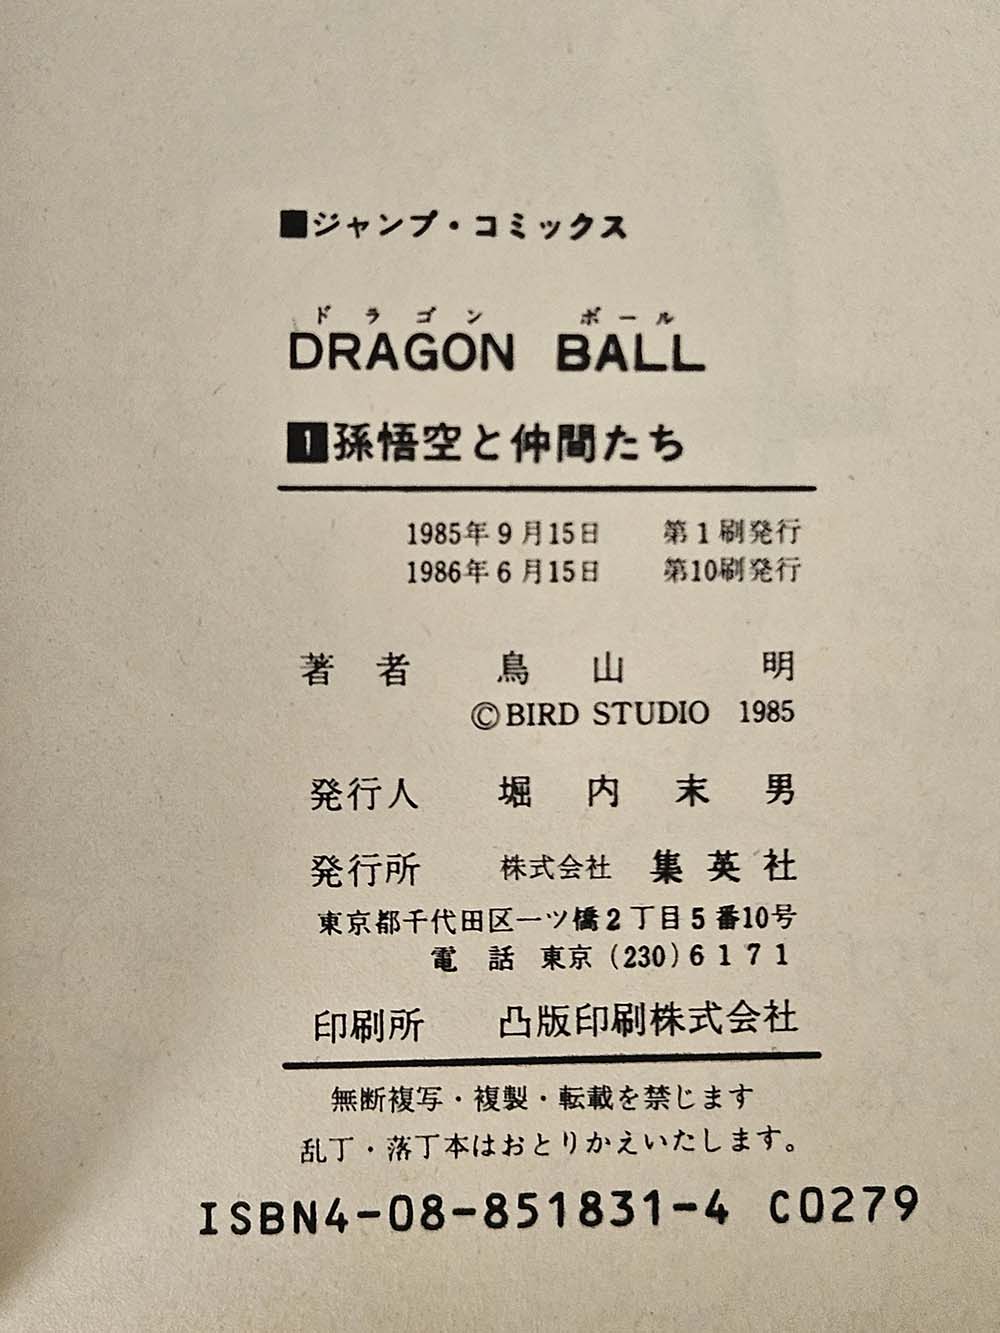 ■ジャンプ・コミックス
ドラゴン ボール
DRAGON BALL
1 孫悟空と仲間たち
1985年9月15日 第1刷発行
1986年6月15日 第10刷発行
著者 鳥山明
©BIRD STUDIO 1985
発行人 堀内末男
発行所 株式会社 集英社
東京都千代田区一ツ橋2丁目5番10号
電話 東京 (230) 6171
印刷所 凸版印刷株式会社
無断複写・複製・転載を禁じます
乱丁・落丁本はおとりかえいたします。
ISBN4-08-851831-4 C0279